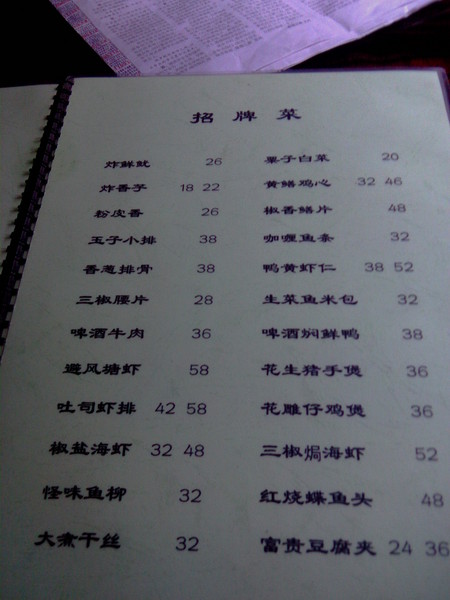 招牌菜
炸鲜鱿 26
炸香子 18 22
粉皮香 26
玉子小排 38
香葱排骨 38
三椒腰片 28
啤酒牛肉 36
避风塘虾 58
吐司虾排 42 58
椒盐海虾 32 48
怪味鱼柳 32
大煮干丝 32
栗子白菜 20
黄鳝鸡心 32 46
椒香鳝片 48
咖喱鱼条 32
鸭黄虾仁 38 52
生菜鱼米包 32
啤酒焖鲜鸭 38
花生猪手煲 36
花雕仔鸡煲 36
三椒焗海虾 52
红烧蝶鱼头 48
富贵豆腐夹 24 36